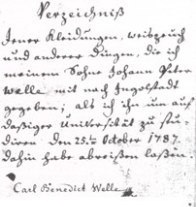 Verzeichniß
Jener Kleidungen, weisszeuch
und anderer Dingen, die ich
meinem Sohne Johann Peter
Welle mit nach Ingolstadt
gegeben; als ich ihn um auf
dasiger Universität zu stu-
diren den 25.ten October 1787.
dahin habe abreißen laßen
Carl Benedict Welle